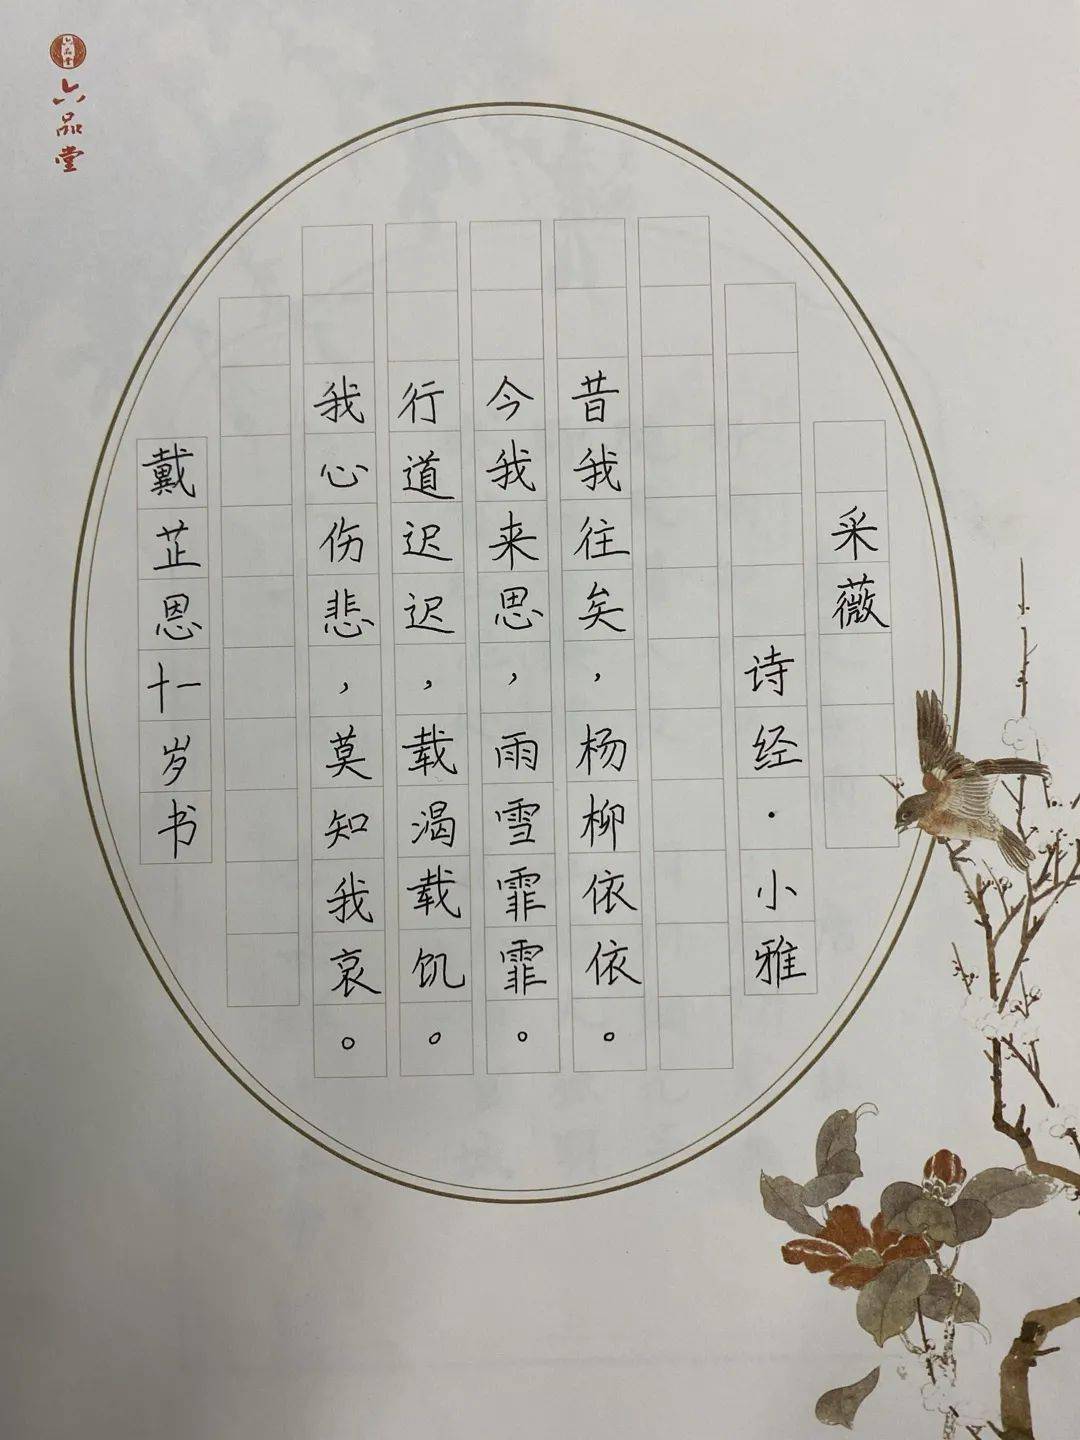 六品堂
六品堂
采薇
诗经·小雅
昔我往矣，杨柳依依。
今我来思，雨雪霏霏。
行道迟迟，载渴载饥。
我心伤悲，莫知我哀。
戴芷恩十一岁书